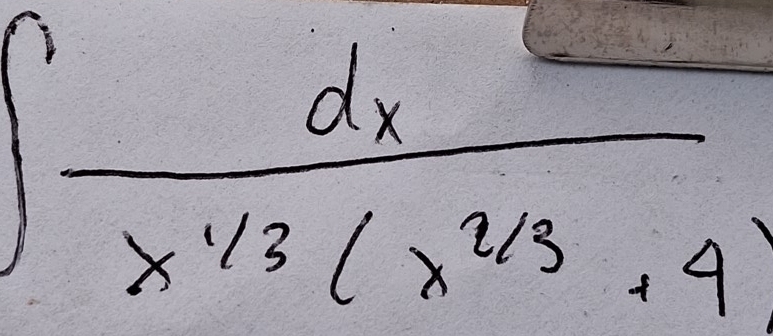 ∫ dx
x^1/3 ( x^2/3 + 4 )